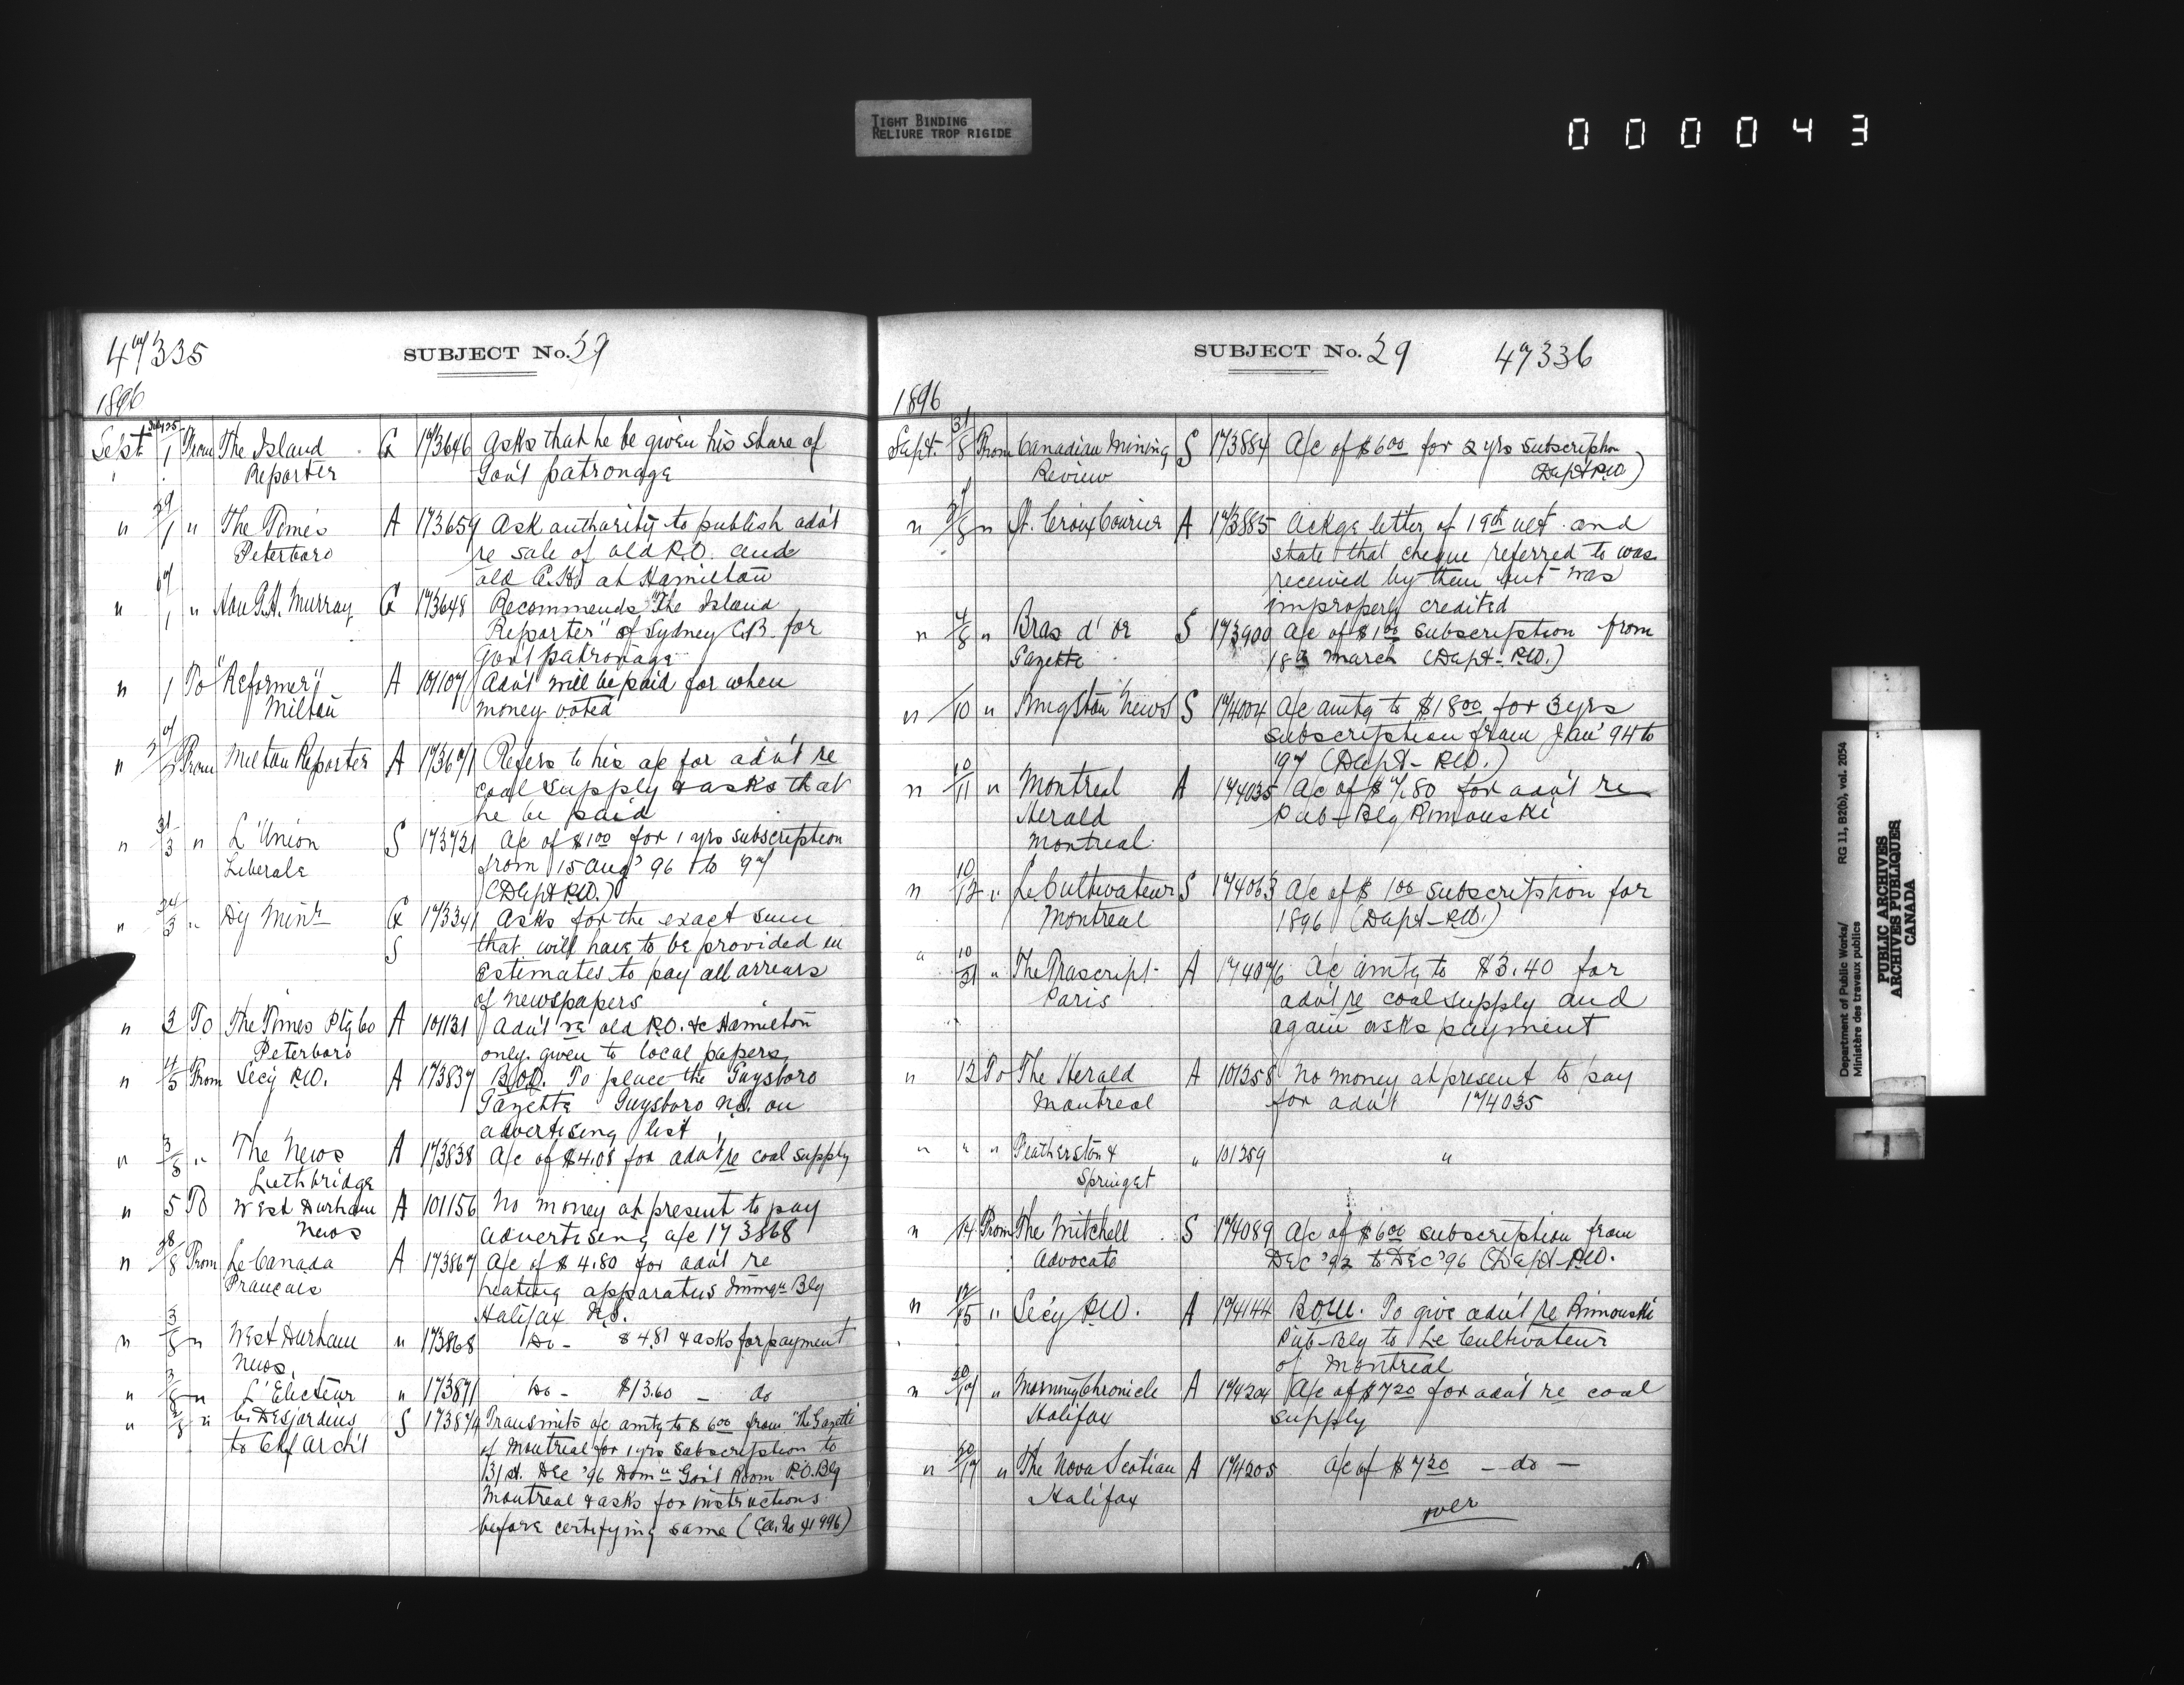 TIGHT BINDING
RELIURE TROP RIGIDE
000043
47335
SUBJECT No. 59
1896
Sept July 25/1 From The Island G 173646 Asks that he be given his share of
Reporter Gov't patronage
" 29/1 " The Times A 173659 Ask authority to publish adv't
Peterboro re sale of old P.O. and
old C.H. at Hamilton
" 1 " Hon G.H. Murray G 173648 Recommends "The Island
Reporter" of Sydney C.B. for
Gov't patronage
" 1 To "Reformer" A 101107 Adv't will be paid for when
Milton money voted
" From Milton Reporter A 173671 Refers to his a/c for adv't re
coal supply & asks that
he be paid
" 31/3 " L'Union S 173721 A/c of $1.00 for 1 yrs subscription
Liberale from 15 Aug' 96 to '97
(Dept P.W.)
" 24/3 " Dy Minr G 173341 Asks for the exact sum
S that will have to be provided in
Estimates to pay all arrears
of newspapers
" 3 To The Times Ptg Co A 101131 Adv't re old P.O. &c Hamilton
Peterboro only given to local papers
" 4/5 From Secy P.W. A 173837 To place the Guysboro
Gazette Guysboro N.S. on
advertising list
" 3/5 " The News A 173838 A/c of $4.08 for adv't re coal supply
Lethbridge
" 5 To West Durham A 101156 No money at present to pay
News advertising a/c 173868
" 28/8 From Le Canada A 173867 A/c of $4.80 for adv't re
Français heating apparatus Immgn Blg
Halifax N.S.
" 3/8 " West Durham " 173868 Do - $4.81 & asks for payment
News
" 3/8 " L'Electeur " 173871 Do - $13.60 - do
" " C. Desjardins S 173874 Transmits a/c amtg to $6.00 from "The Gazette"
to Chf Arch't of Montreal for 1 yrs subscription to
31st Dec '96 Domn Gov't Room P.O. Blg
Montreal & asks for instructions
before certifying same
SUBJECT No. 59 47336
1896
Sept. 31/8 From Canadian Mining S 173884 A/c of $6.00 for 2 yrs subscription
Review (Dept P.W.)
" " St. Croix Courier A 173885 Ackge letter of 19th ult. and
state that cheque referred to was
received by them but was
improperly credited
" 4/8 " Bras d'or S 173900 A/c of $1.00 subscription from
Gazette 18th March (Dept P.W.)
" /10 " Kingston News S 174004 A/c amtg to $18.00 for 3 yrs
subscription from Jan' 94 to
'97 (Dept - P.W.)
" 10/11 " Montreal A 174035 A/c of $7.80 for adv't re
Herald Pub - Blg Rimouski
Montreal
" 10/12 " Le Cultivateur S 174063 A/c of $1.00 subscription for
Montreal 1896 (Dept - P.W.)
" " The Trascript A 174076 A/c amtg to $3.40 for
Paris adv't re coal supply and
again asks payment
" 12 To The Herald A 101258 No money at present to pay
Montreal for adv't 174035
" " " Featherston & " 101259 "
Springet
" 14 From The Mitchell S 174089 A/c of $6.00 subscription from
Advocate Dec '92 to Dec '96 (Dept - P.W.
" 12/15 " Secy P.W. A 174144 To give adv't re Rimouski
Pub - Blg to Le Cultivateur
of Montreal
" " Morning Chronicle A 174204 A/c of $7.20 for adv't re coal
Halifax supply
" " The Nova Scotian A 174205 A/c of $7.20 - do -
Halifax
over
Department of Public Works/ RG 11, B2(b), vol. 2054
Ministère des travaux publics
PUBLIC ARCHIVES
ARCHIVES PUBLIQUES
CANADA